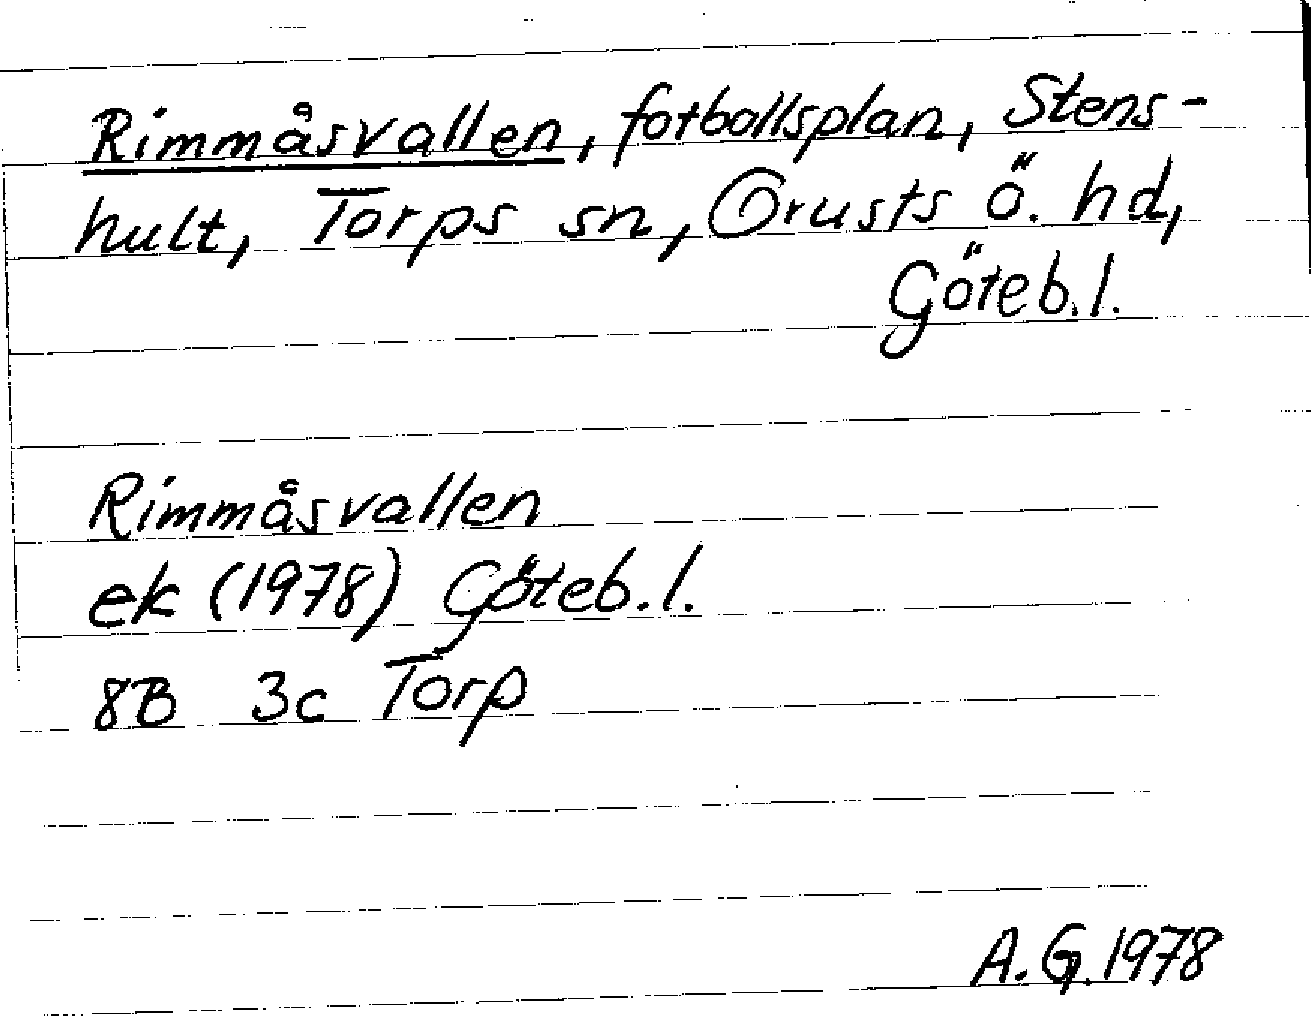 Rimmåsvallen, fotbollsplan, Stens-
hult, Torps sn, Orusts ö. hd,
Göteb.l.
Rimmåsvallen
ek (1978) Göteb.l.
8B 3c Torp
A.G. 1978